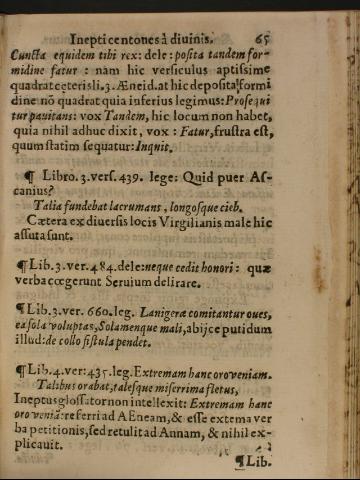 Inepti centones à diuinis. 65
Cuncta equidem tibi rex: dele: posita tandem for-
midine fatur: nam hic versiculus aptissime
quadrat ceteris li. 3. Æneid. at hic deposita formi
dine nō quadrat quia inferius legimus: Prosequi
tur pauitans: vox Tandem, hic locum non habet,
quia nihil adhuc dixit, vox: Fatur, frustra est,
quum statim sequatur: Inquit.
¶ Libro. 3. vers. 439. lege: Quid puer As-
canius?
Talia fundebat lacrumans, longosque cieb.
Cætera ex diuersis locis Virgilianis male hic
assuta sunt.
¶ Lib. 3. ver. 484. dele: neque cedit honori: quæ
verba coegerunt Seruium delirare.
¶ Lib. 3. ver. 660. leg. Lanigeræ comitantur oues,
ea sola voluptas, Solamenque mali, abijce putidum
illud: de collo fistula pendet.
¶ Lib. 4. ver: 435. leg. Extremam hanc oro veniam.
Talibus orabat, talesque miserrima fletus,
Ineptus glossator non intellexit: Extremam hanc
oro veniā: referri ad AEneam, & esse extema ver
ba petitionis, sed retulit ad Annam, & nihil ex-
plicauit.
¶ Lib.